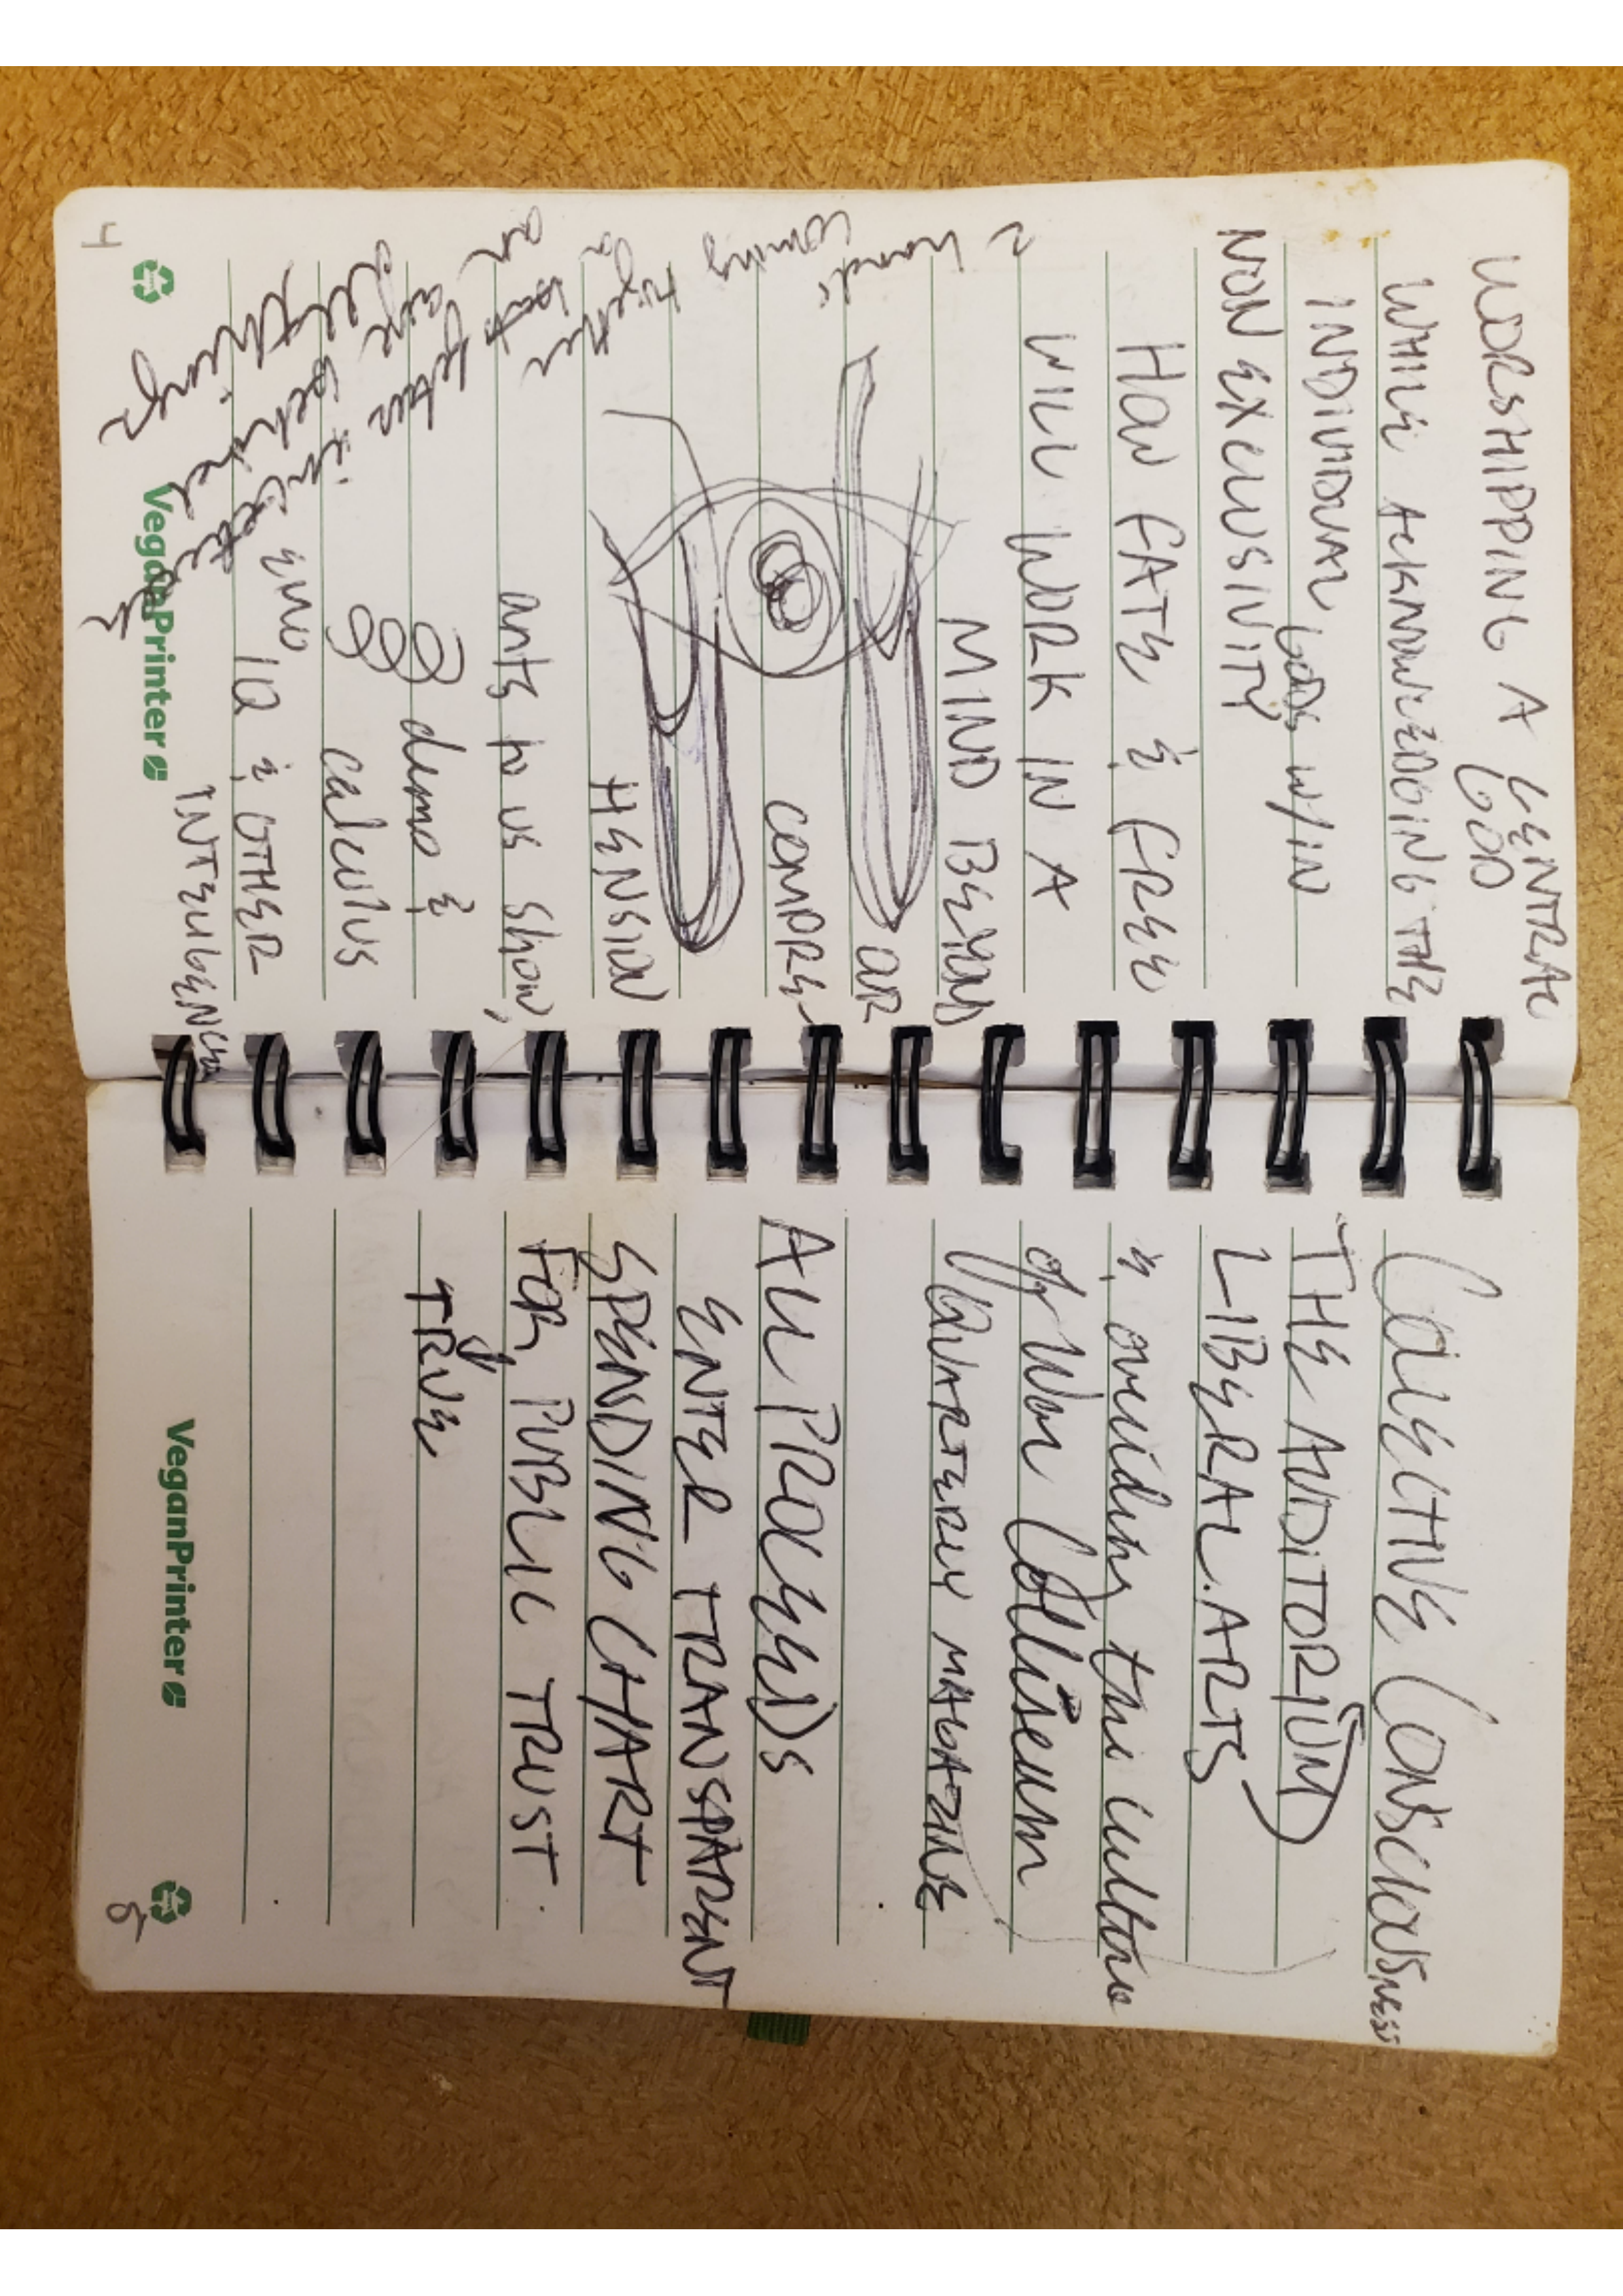 WORSHIPPING A CENTRAL
GOD
WHILE ACKNOWLEDGING THE
INDIVIDUAL GODS W/IN
NON EXCLUSIVITY
HOW FATE & FREE
WILL WORK IN A
MIND BEYOND
OUR
COMPRE-
HENSION
ants to us show,
demo &
calculus
EMO IQ & OTHER
INTELLIGENCES
hands
coming
together
on
an
are
things
4
VeganPrinter
COLLECTIVE CONSCIOUSNESS
THE AUDITORIUM
LIBERAL ARTS
& avoiding the culture
of War Colliseum
QUARTERLY MAGAZINE
All PROCEEDS
ENTER TRANSPARENT
SPENDING CHART
FOR PUBLIC TRUST
TRUE
VeganPrinter
5